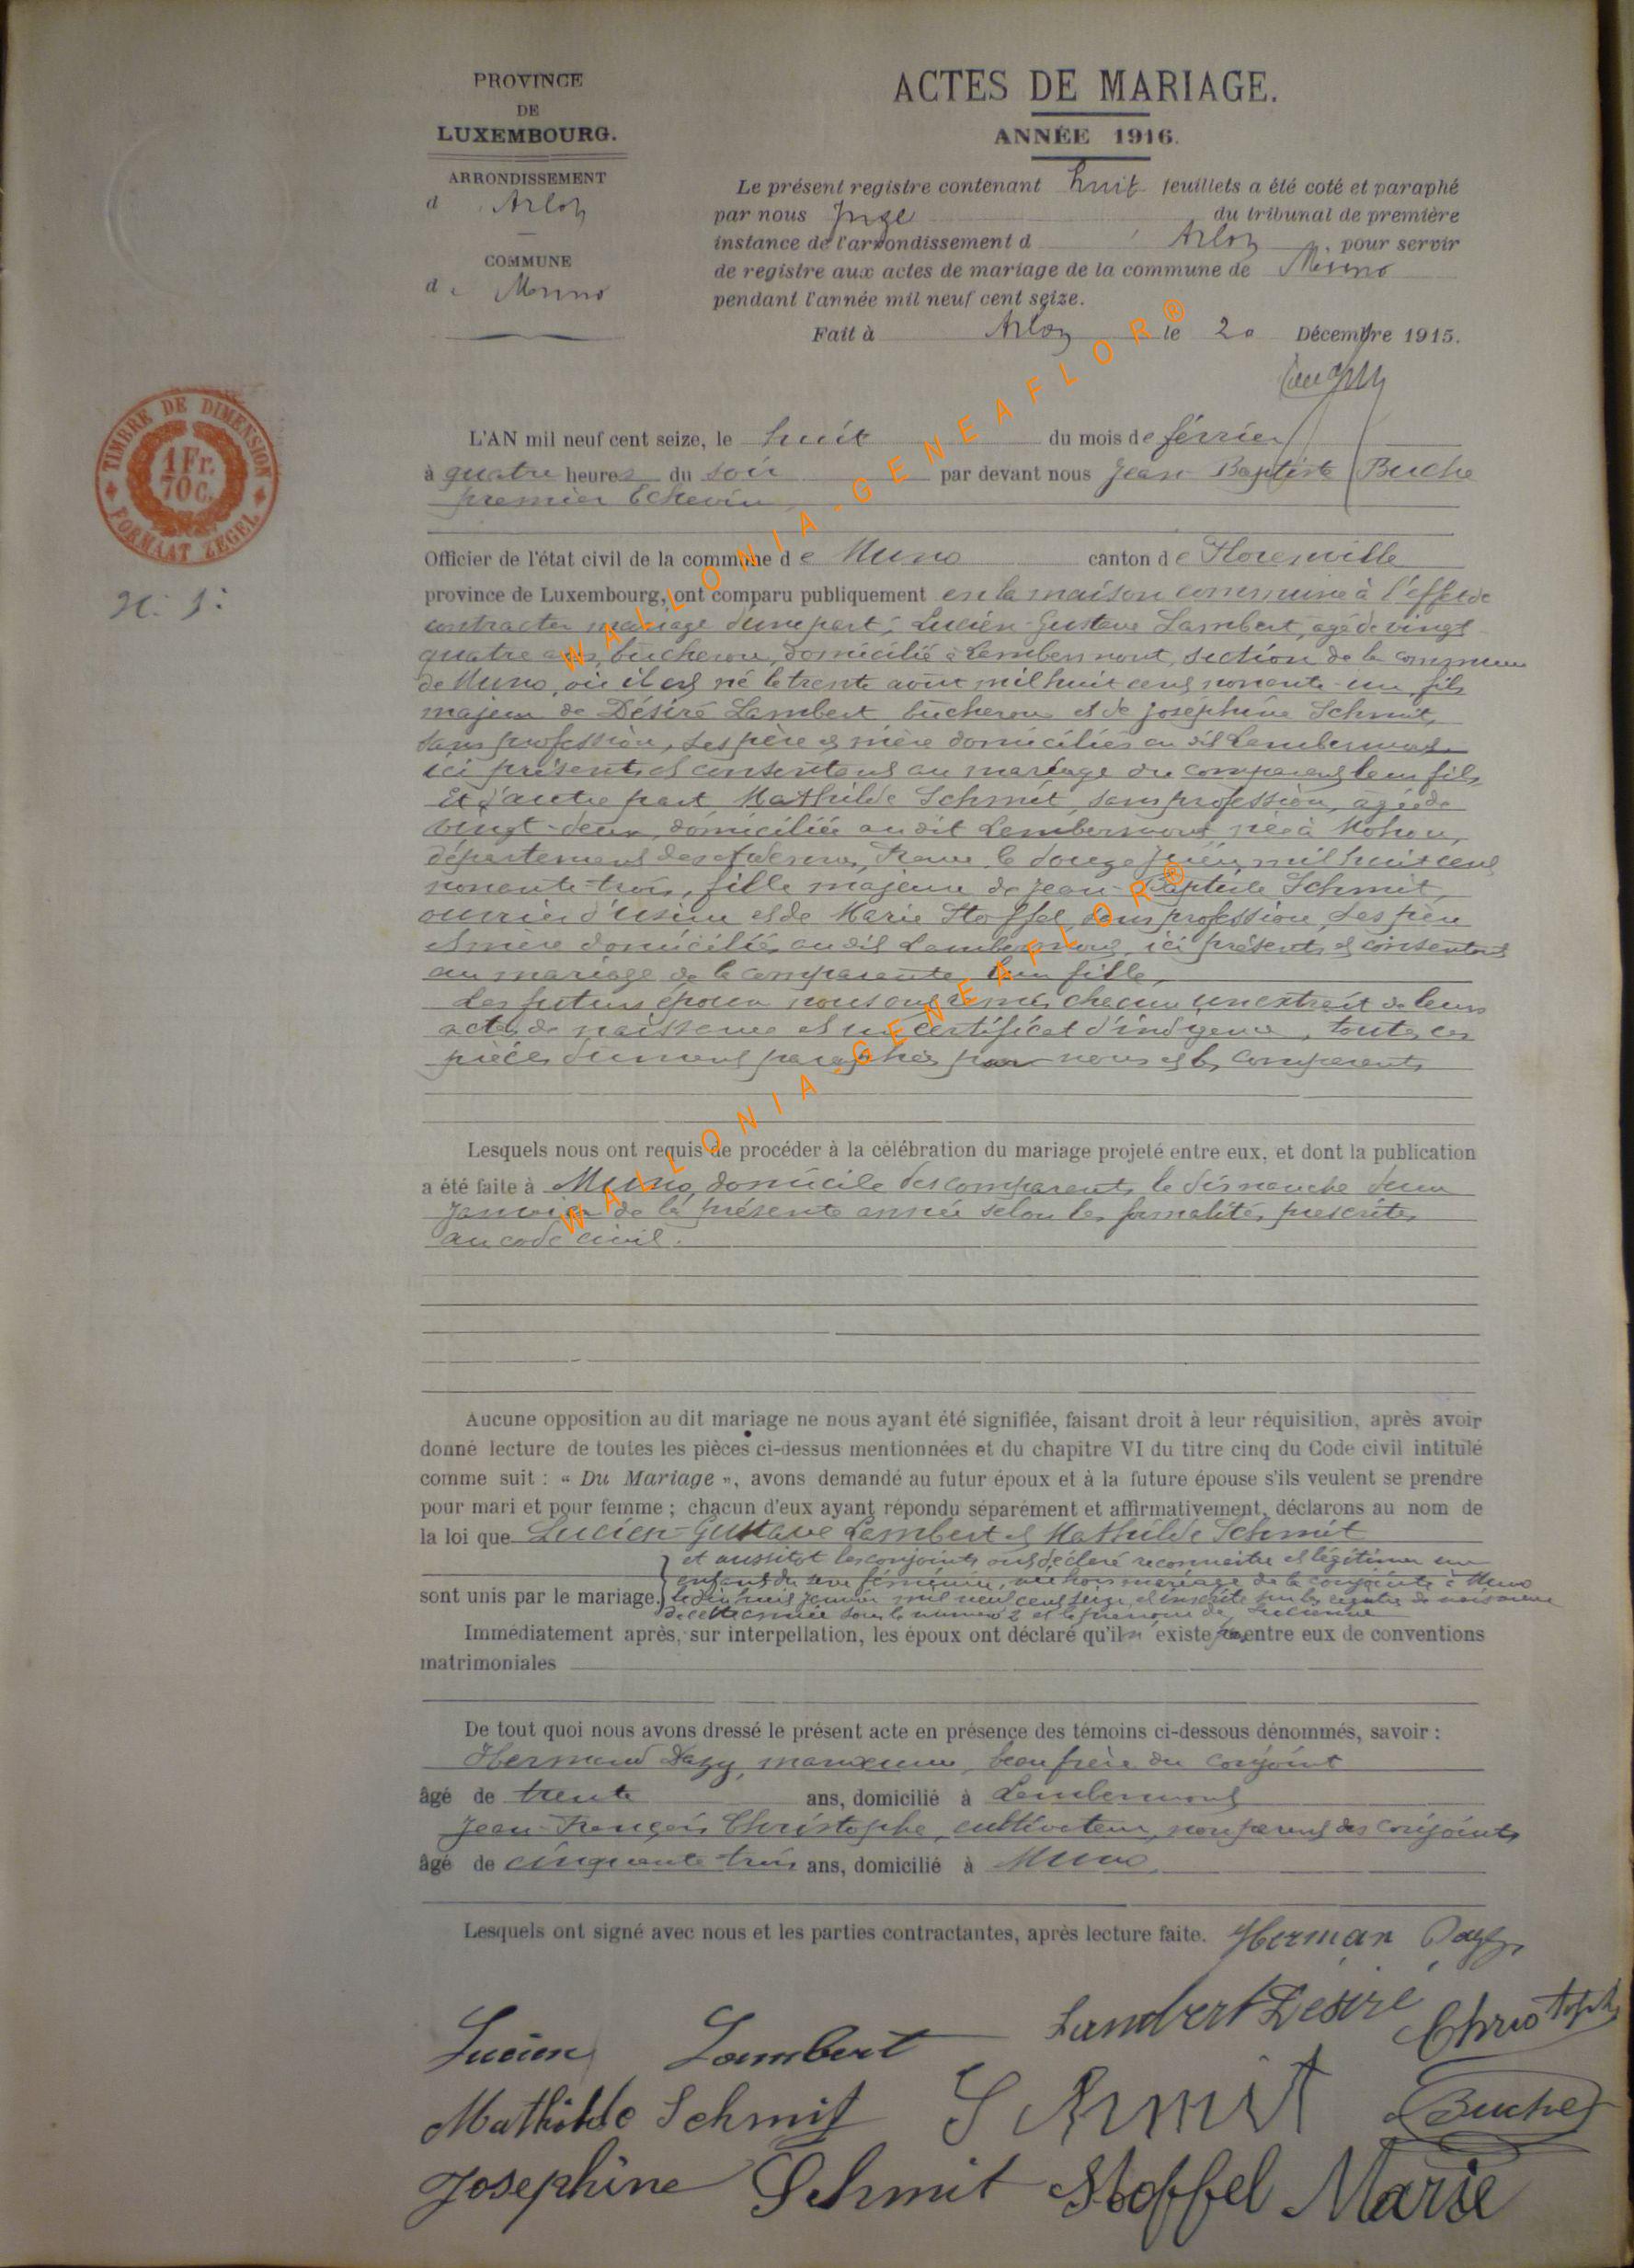 PROVINCE
DE
LUXEMBOURG.
ARRONDISSEMENT
d Arlon
COMMUNE
de Muno
ACTES DE MARIAGE.
ANNÉE 1916.
Le présent registre contenant huit feuillets a été coté et paraphé
par nous Juge du tribunal de première
instance de l'arrondissement d Arlon, pour servir
de registre aux actes de mariage de la commune de Muno
pendant l'année mil neuf cent seize.
Fait à Arlon le 20 Décembre 1915.
TIMBRE DE DIMENSION
1 Fr.
70 C.
FORMAAT ZEGEL
N. 1:
L'AN mil neuf cent seize, le huit du mois de février
à quatre heures du soir par devant nous Jean Baptiste Buche
premier Echevin
Officier de l'état civil de la commune de Muno canton de Florenville
province de Luxembourg, ont comparu publiquement en la maison commune à l'effet de
contracter mariage d'une part, Lucien-Gustave Lambert, agé de vingt
quatre ans, bûcheron, domicilié à Lambermont, section de la commune
de Muno, où il est né le trente août mil huit cent nonante-un, fils
majeur de Désiré Lambert, bûcheron et de Joséphine Schmit,
sans profession, ses père et mère domiciliés au dit Lambermont
ici présents et consentant au mariage du comparant leur fils,
Et d'autre part Mathilde Schmit, sans profession, agée de
vingt-deux, domiciliée au dit Lambermont, née à Mohon,
département des Ardennes, France le douze juin mil huit cent
nonante-trois, fille majeure de Jean-Baptiste Schmit,
ouvrier d'usine et de Marie Stoffel, sans profession, ses père
et mère domiciliés au dit Lambermont, ici présents et consentant
au mariage de la comparante, leur fille,
Les futurs époux nous ont remis chacun un extrait de leurs
actes de naissance et un certificat d'indigence, toutes ces
pièces dûment paraphées par nous et les comparants
Lesquels nous ont requis de procéder à la célébration du mariage projeté entre eux, et dont la publication
a été faite à Muno domicile des comparants le dimanche deux
Janvier de la présente année selon les formalités prescrites
au code civil.
Aucune opposition au dit mariage ne nous ayant été signifiée, faisant droit à leur réquisition, après avoir
donné lecture de toutes les pièces ci-dessus mentionnées et du chapitre VI du titre cinq du Code civil intitulé
comme suit : « Du Mariage », avons demandé au futur époux et à la future épouse s'ils veulent se prendre
pour mari et pour femme ; chacun d'eux ayant répondu séparément et affirmativement, déclarons au nom de
la loi que Lucien-Gustave Lambert et Mathilde Schmit
et aussitot les conjoints ont déclaré reconnaitre et légitimer un
enfant du sexe féminin, née hors mariage de la conjointe à Muno
sont unis par le mariage. le dix huit janvier mil neuf cent seize, et inscrite sur les registres de naissance
de cette année sous le numéro 2 et le prénom de Lucienne
Immédiatement après, sur interpellation, les époux ont déclaré qu'il n'existe pas entre eux de conventions
matrimoniales
De tout quoi nous avons dressé le présent acte en présence des témoins ci-dessous dénommés, savoir :
Hermand Dagy, beau frère du conjoint
âgé de trente ans, domicilié à Lambermont
Jean-François Christophe, cultivateur, non parent des conjoints
âgé de cinquante trois ans, domicilié à Muno
Lesquels ont signé avec nous et les parties contractantes, après lecture faite. Herman Dagy
Lucien Lambert Lambert Désiré Christophe
Mathilde Schmit Schmit Buche
Josephine Schmit Stoffel Marie
WALLONIA-GENEAFLOR®
WALLONIA-GENEAFLOR®